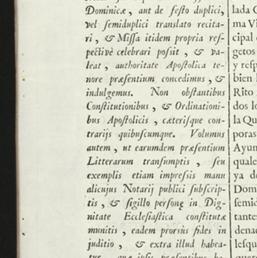 Dominicæ, aut de festo duplici,
vel semiduplici translato recita-
ri, & Missa itidem propria res-
pectivè celebrari possit, & va-
leat, authoritate Apostolica te-
nore præsentium concedimus, &
indulgemus. Non obstantibus
Constitutionibus, & Ordinationi-
bus Apostolicis, cæterisque con-
trarijs quibuscumque. Volumus
autem, ut earumdem præsentium
Litterarum transumptis, seu
exemplis etiam impressis manu
alicujus Notarij publici subscrip-
tis, & sigillo personę in Dig-
nitate Ecclesiastica constitutæ
munitis, eadem prorsus fides in
juditio, & extra illud habea-
tur, quæ ipsis præsentibus ha-
lada
ma Vi
cipal
y resp
bien
Rito
dos lo
la Qu
Para
Ayun
qual
ya de
Domi
semid
tantes
denac
lesqu